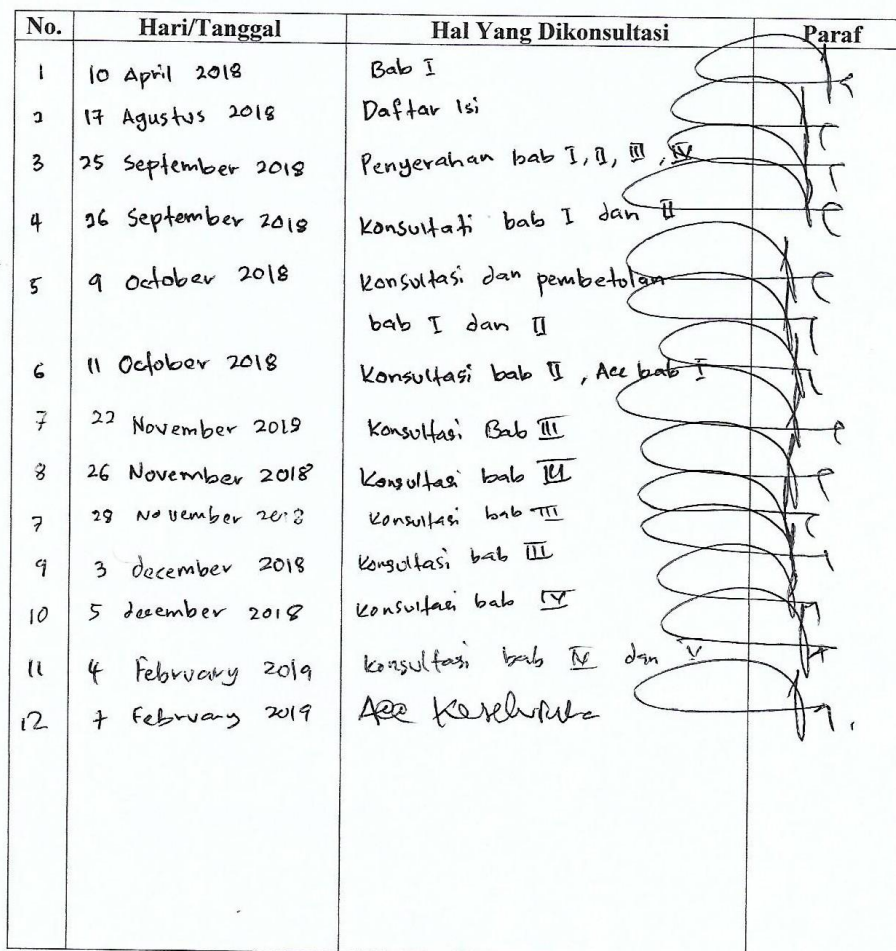 No. Hari/Tanggal Hal Yang Dikonsultasi Paraf
1 10 April 2018 Bab I
2 17 Agustus 2018 Daftar Isi
3 25 September 2018 Penyerahan bab I, II, III, IV
4 26 September 2018 Konsultati bab I dan II
5 9 October 2018 Konsultasi dan pembetolan
bab I dan II
6 11 October 2018 Konsultasi bab II, Acc bab I
7 22 November 2018 Konsultasi Bab III
8 26 November 2018 Konsultasi bab III
7 28 November 2018 Konsultasi bab III
9 3 december 2018 Konsultasi bab III
10 5 december 2018 Konsultasi bab IV
11 4 February 2019 Konsultasi bab IV dan V
12 7 February 2019 Acc